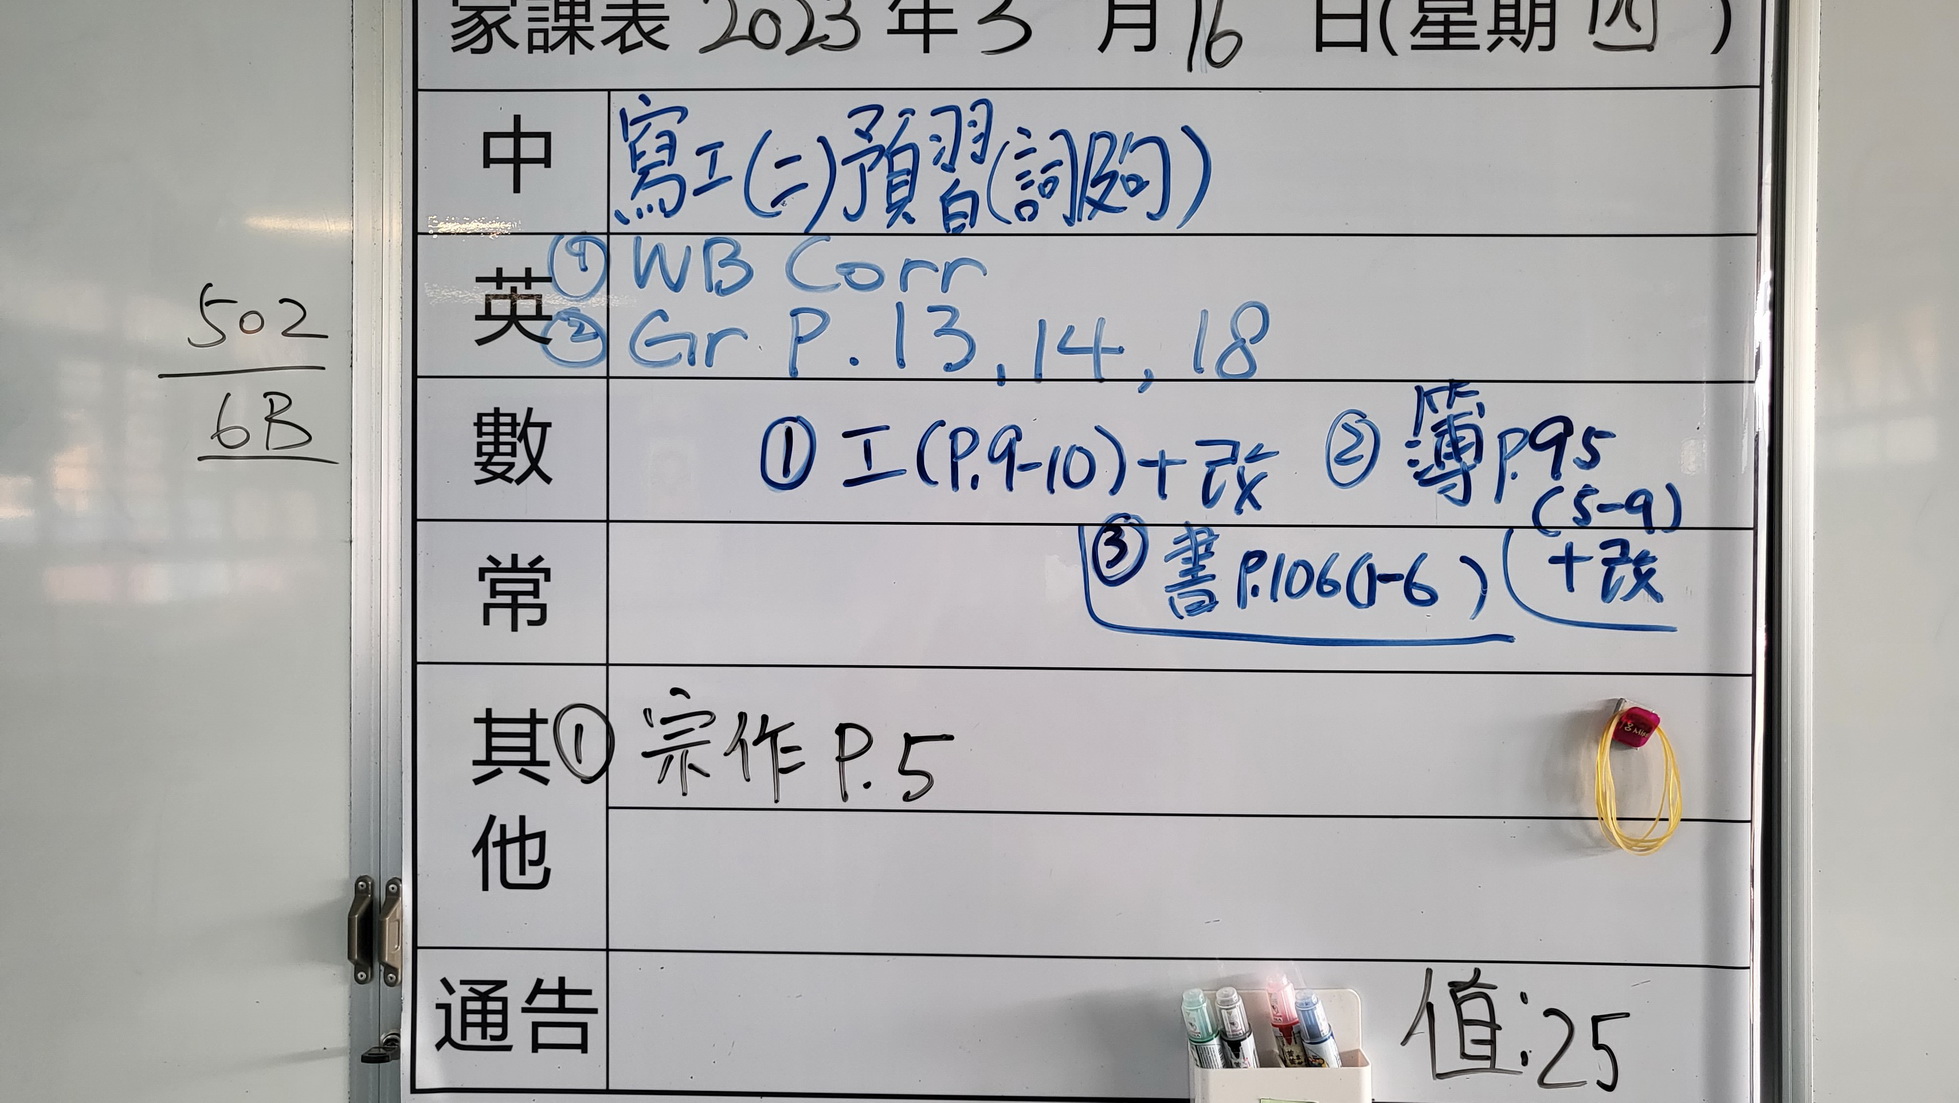 家課表 2023 年 3 月 16 日(星期 四 )
中
寫工(二)預習(詞, 句)
英
① WB Corr
② Gr P. 13, 14, 18
數
① 工(P.9-10)+改 ② 簿P.95
(5-9)
+改
常
③ 書P.106(1-6)
其他
① 宗作 P.5
通告
值:25
502
6B